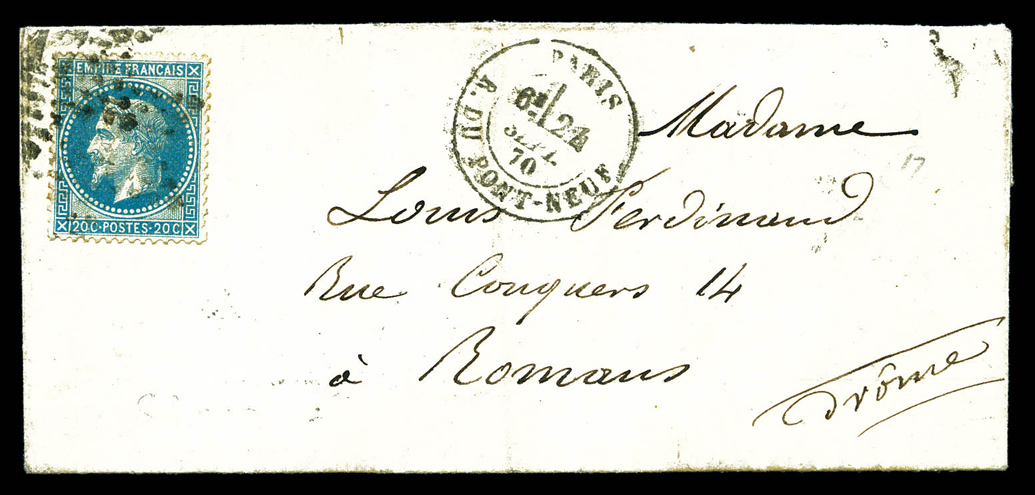 EMPIRE FRANCAIS
20C·POSTES·20C
PARIS
R. DU PONT-NEUF
6E 24
SEPT.
70
Madame
Louis Ferdinand
Rue Conquers 14
à Romans
Drôme
17